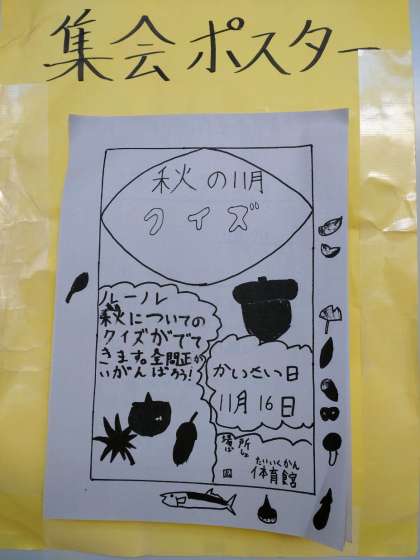 集会ポスター
秋の11月
クイズ
ルール
秋についての
クイズがでて
きます。全問正か
いがんばろう!
かいさい日
11月16日
場所
ばしょ
たいいくかん
体育館